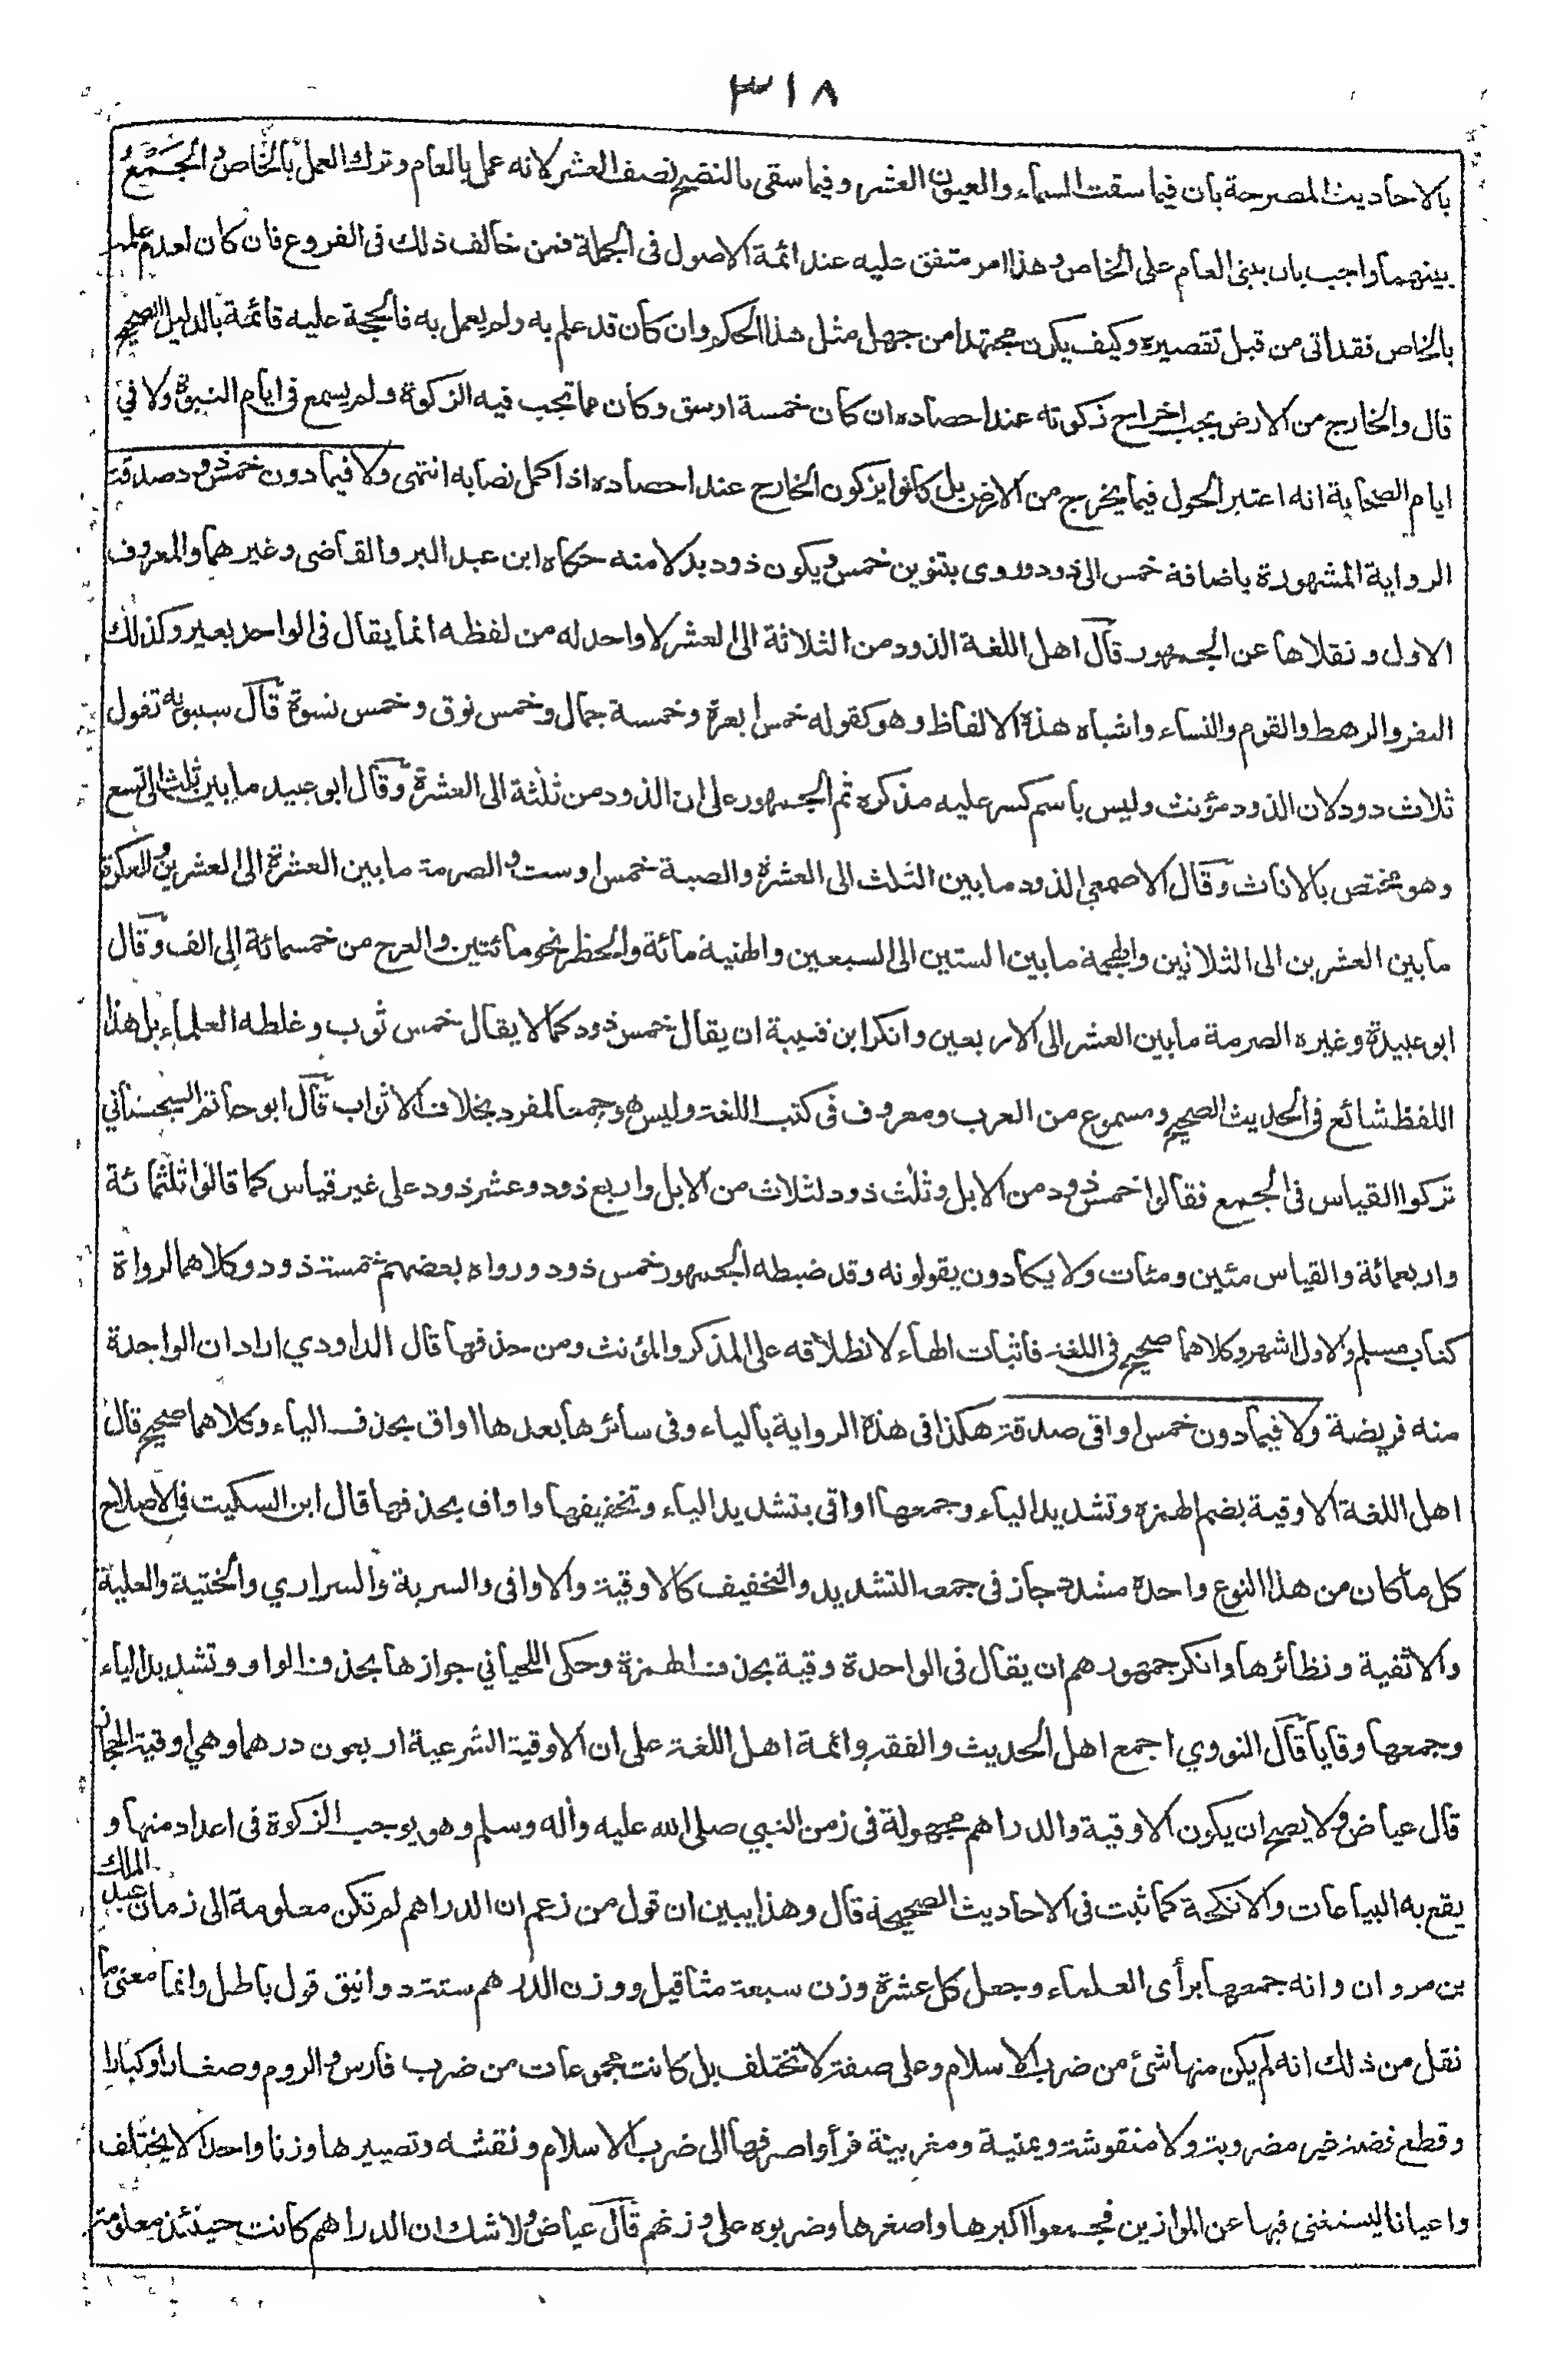 ٣١٨
بالاحاديث المصرحة بان فيما سقت السماء والعيون العشر وفيما سقى بالنضح نصف العشر لانه عمل بالعام وترك العمل بالخاص والجَمْعُ
بينهما واجب بان يبنى العام على الخاص وهذا امر متفق عليه عند ائمة الاصول فى الجملة فمن خالف ذلك فى الفروع فان كان لعدم علمه
بالخاص فقد اتى من قبل تقصيره وكيف يكون مجتهدا من جهل مثل هذا الحكم وان كان قد علم به ولم يعمل به فالحجة عليه قائمة بالدليل الصحيح
قال والخارج من الارض يجب اخراج زكوته عند احصاده ان كان خمسة اوسق وكان مما تجب فيه الزكوة ولم يسمع فى ايام النبوة ولا في
ايام الصحابة انه اعتبر الحول فيما يخرج من الارض بل كانوا يزكون الخارج عند احصاده اذا كمل نصابه انتهى ولا فيما دون خمس ذود صدقة
الرواية المشهورة باضافة خمس الى ذود وروى بتنوين خمس ويكون ذود بدلا منه حكاه ابن عبد البر والقاضى وغيرهما والمعروف
الاول ونقلاها عن الجمهور قال اهل اللغة الذود من الثلاثة الى العشر لا واحد له من لفظه انما يقال فى الواحد بعير وكذلك
النفر والرهط والقوم والنساء واشباه هذه الالفاظ وهو كقوله خمس ابعرة وخمسة جمال وخمس نوق وخمس نسوة قال سيبويه تقول
ثلاث ذود لان الذود مؤنث وليس باسم كسر عليه مذكره ثم الجمهور على ان الذود من ثلثة الى العشرة وقال ابو عبيد ما بين ثلث الى تسع
وهو مختص بالاناث وقال الاصمعي الذود ما بين الثلث الى العشرة والصبة خمس اوست والصرمة ما بين العشرة الى العشرين والعكرة
ما بين العشرين الى الثلاثين والهجمة ما بين الستين الى السبعين والهنية مائة والحظر نحو مائتين والعرج من خمسمائة إلى الف وقال
ابو عبيدة وغيره الصرمة ما بين العشر الى الاربعين وانكر ابن قتيبة ان يقال خمس ذود كما لا يقال خمس ثوب وغلطه العلماء بل هذا
اللفظ شائع فى الحديث الصحيح ومسموع من العرب ومعروف فى كتب اللغة وليس هو جمعا لمفرد بخلاف الاثواب قال ابو حاتم السجستاني
تركوا القياس فى الجمع فقالوا خمس ذود من الابل وثلث ذود لثلاث من الابل واربع ذود وعشر ذود على غير قياس كما قالوا ثلثمائة
واربعمائة والقياس مئين ومئات ولا يكادون يقولونه وقد ضبطه الجمهور خمس ذود ورواه بعضهم خمسة ذود وكلاهما لرواة
كتاب مسلم والاول اشهر وكلاهما صحيح فى اللغة فاثبات الهاء لانطلاقه على المذكر والمؤنث ومن حذفها قال الداودي اراد ان الواحدة
منه فريضة ولا فيما دون خمس اواقى صدقة هكذا فى هذه الرواية بالياء وفى سائرها بعدها اواق بحذف الياء وكلاهما صحيح قال
اهل اللغة الاوقية بضم الهمزه وتشديد الياء وجمعها اواقى بتشديد الياء وتخفيفها واواق بحذفها قال ابن السكيت فى الاصلاح
كل ما كان من هذا النوع واحده مشدد جاز فى جمعه التشديد والتخفيف كالاوقية والاواقى والسرية والسراري والختية والعلية
والاثفية ونظائرها وانكر جمهورهم ان يقال فى الواحدة وقية بحذف الهمزة وحكى اللحياني جوازها بحذف الواو وتشديد الياء
وجمعها وقايا قال النووي اجمع اهل الحديث والفقه وائمة اهل اللغة على ان الاوقية الشرعية اربعون درهما وهي اوقية الحجاز
قال عياض ولا يصح ان يكون الاوقية والدراهم مجهولة فى زمن النبي صلى الله عليه وأله وسلم وهو يوجب الزكوة فى اعداد منها و
يقع به البياعات والانكحة كما ثبت فى الاحاديث الصحيحة قال وهذا يبين ان قول من زعم ان الدراهم لم تكن معلومة الى زمان عبد الملك
بن مروان وانه جمعها برأى العلماء وجعل كل عشرة وزن سبعة مثاقيل ووزن الدرهم ستة دوانيق قول باطل وانما معنى ما
نقل من ذلك انه لم يكن منها شئ من ضرب الاسلام وعلى صفة لا تختلف بل كانت مجموعات من ضرب فارس والروم وصغارا وكبارا
وقطع فضة غير مضروبة ولا منقوشة ويمنية ومغربية فرأوا صرفها الى ضرب الاسلام ونقشه وتصييرها وزنا واحدا لا يختلف
واعيانا ليستغنى فيها عن الموازين فجمعوا اكبرها واصغرها وضربوه على وزنهم قال عياض ولا شك ان الدراهم كانت حينئذ معلومة